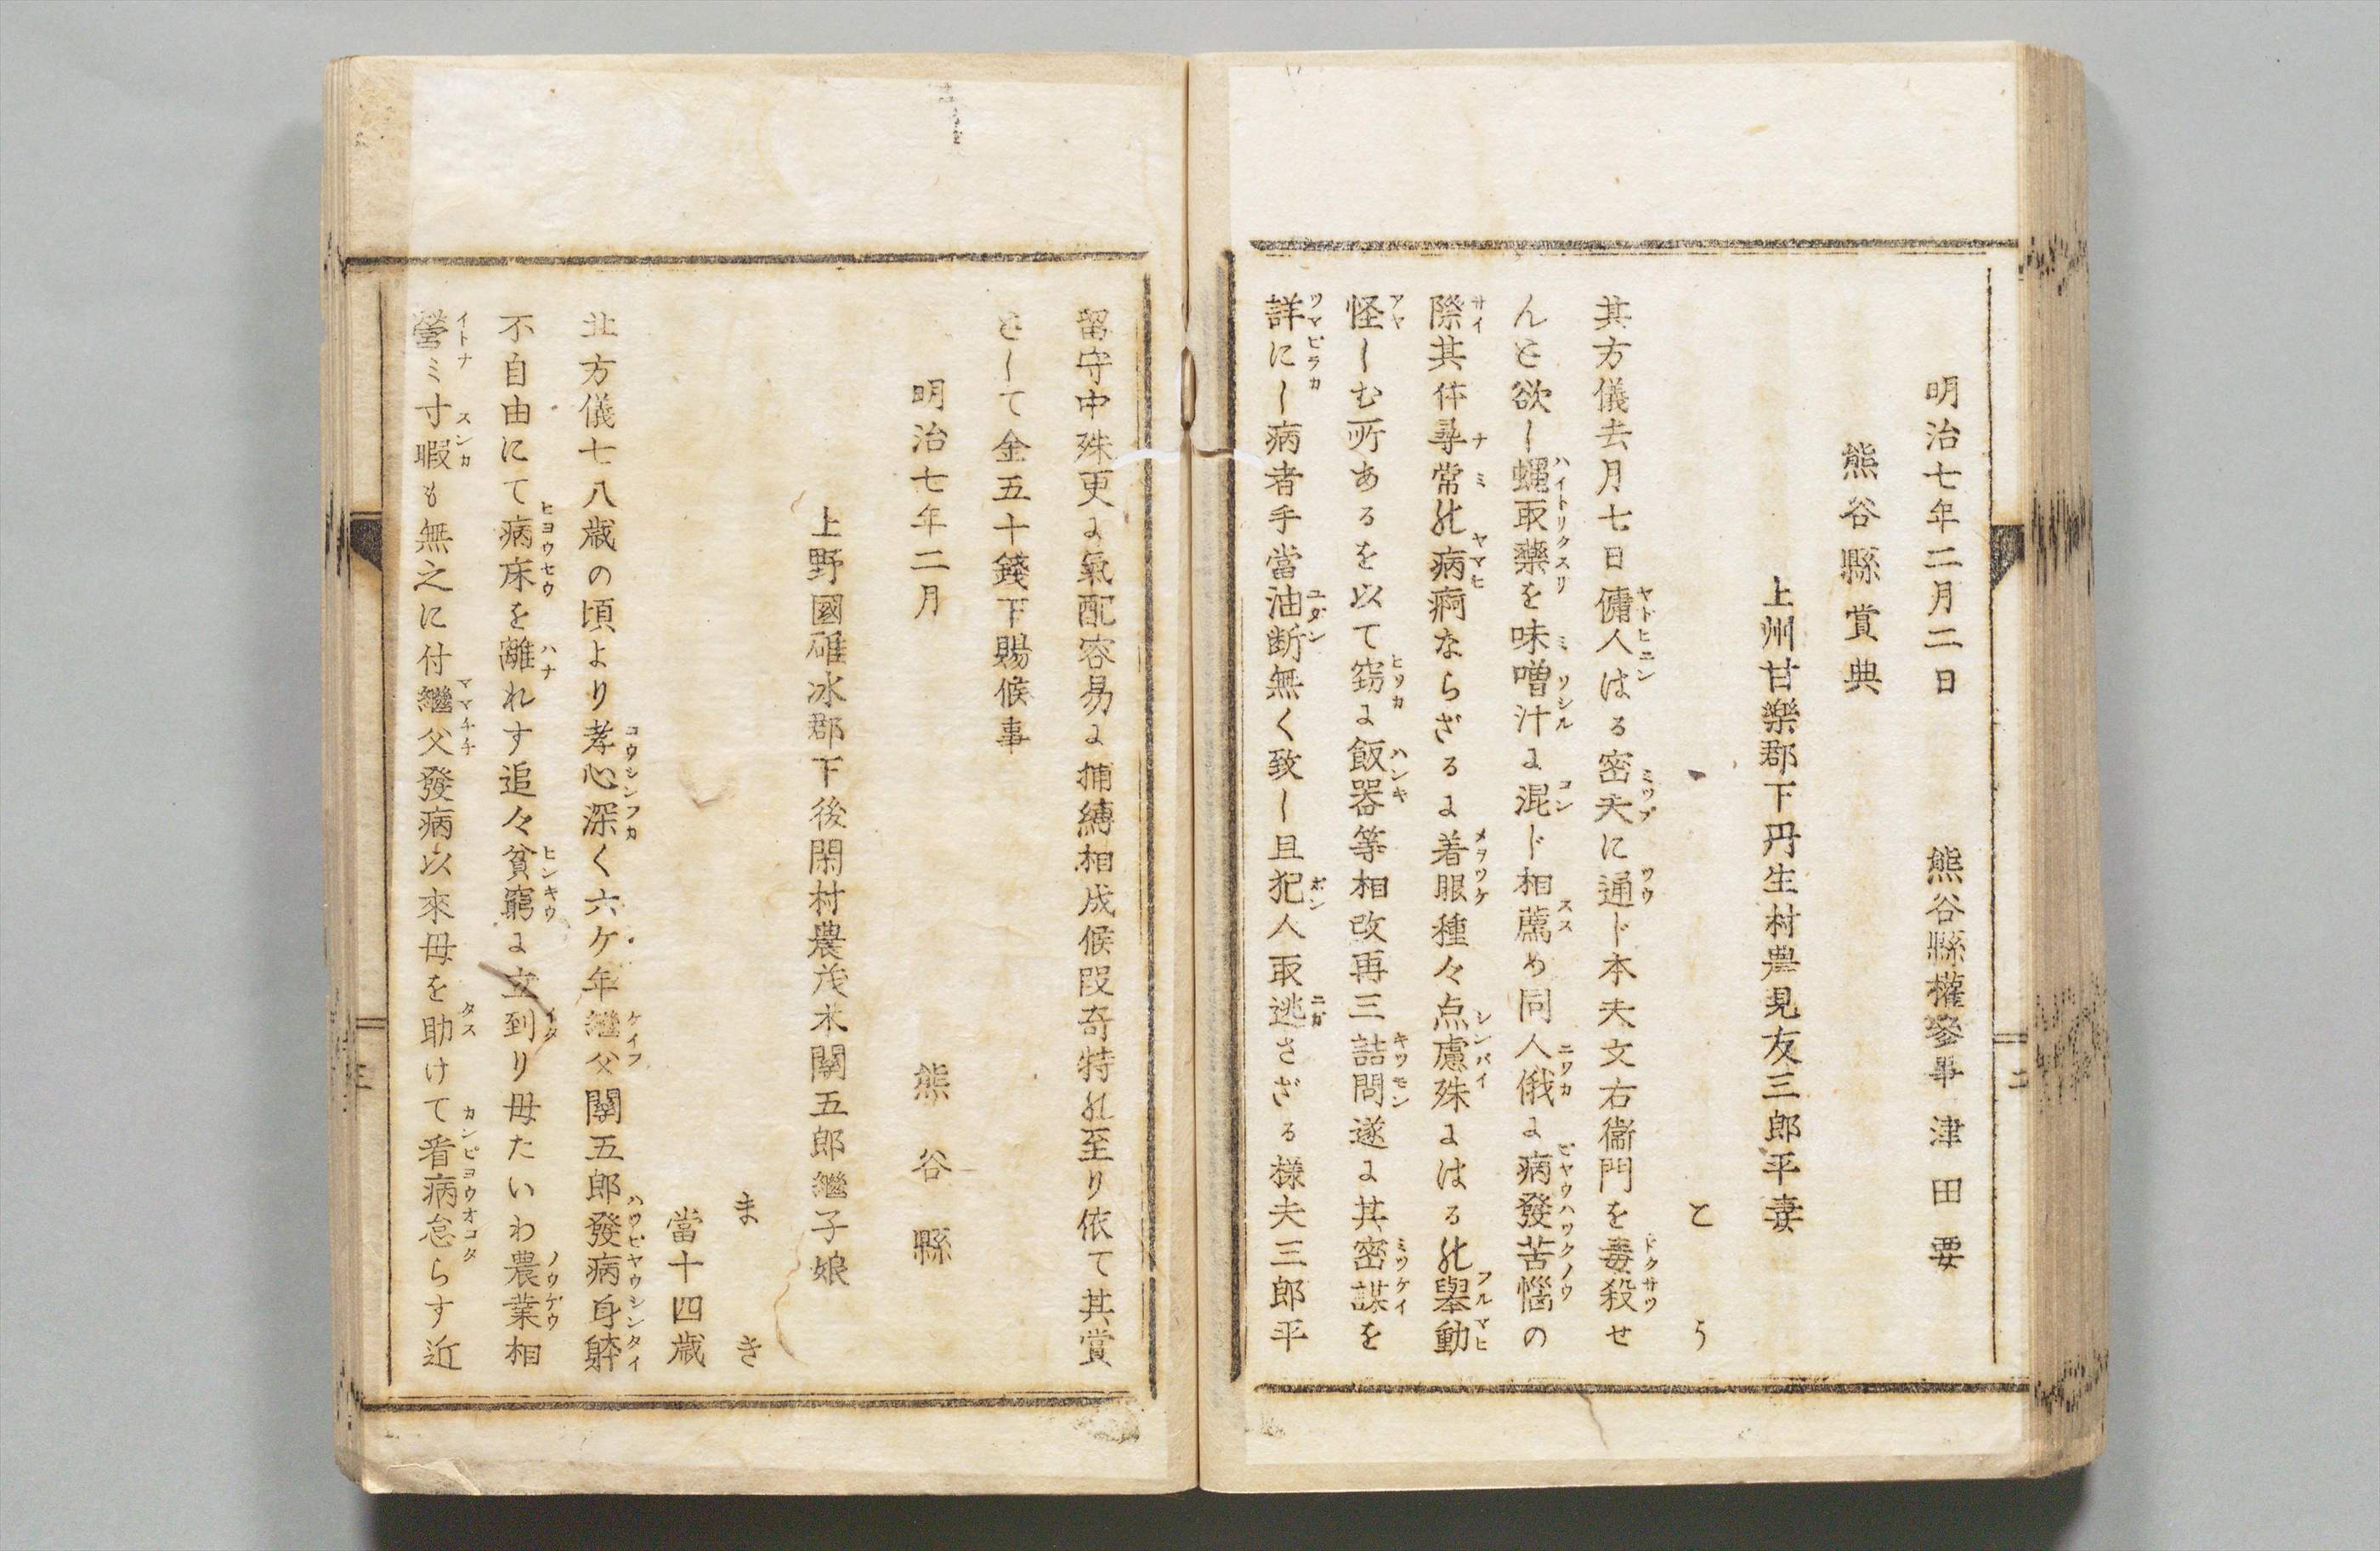 明治七年二月二日　熊谷縣權參事津田要
熊谷縣賞典
上州甘樂郡下丹生村農見友三郎平妻
とう
其方儀去月七日傭人はる密夫に通ド本夫文右衞門を毒殺せ
んと欲し蝿取藥を味噌汁に混ド相薦め同人俄に病發苦惱の
際其体尋常の病痾ならざるに着眼種々点慮殊にはるの舉動
怪しむ所あるを以て窃に飯器等相改再三詰問遂に其密謀を
詳にし病者手當油断無く致し且犯人取逃さざる様夫三郎平
留守中殊更に氣配容易に捕縛相成候段奇特の至り依て其賞
として金五十錢下賜候事
明治七年二月　熊谷縣
上野國碓冰郡下後閑村農茂木關五郎繼子娘
まき
當十四歳
其方儀七八歳の頃より孝心深く六ケ年繼父關五郎發病身躰
不自由にて病床を離れす追々貧窮に立到り母たいわ農業相
營ミ寸暇も無之に付繼父發病以來母を助けて看病怠らす近